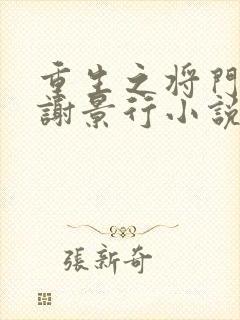 重生之将門
謝景行小説
張新奇